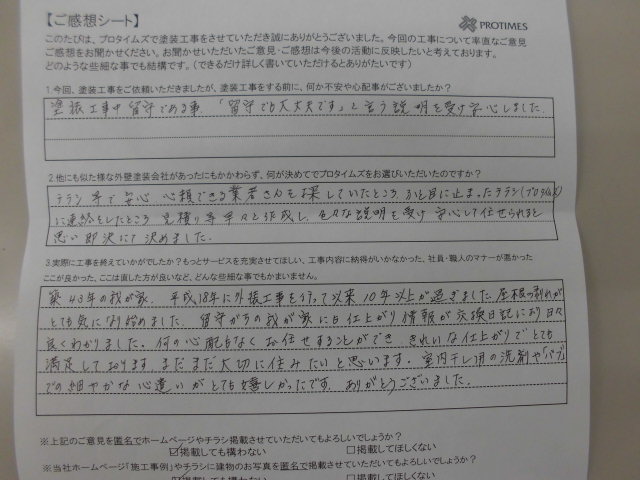 【ご感想シート】
PROTIMES
このたびは、プロタイムズで塗装工事をさせていただき誠にありがとうございました。今回の工事について率直なご意見
ご感想をお聞かせください。お聞かせいただいたご意見・ご感想は今後の活動に反映したいと考えております。
どのような些細な事でも結構です。(できるだけ詳しく書いていただけるとありがたいです)
1.今回、塗装工事をご依頼いただきましたが、塗装工事をする前に、何か不安や心配事がございましたか?
塗装工事中留守である事.「留守でも大丈夫です」と言う説明を受け安心しました.
2.他にも似た様な外壁塗装会社があったにもかかわらず、何が決めてでプロタイムズをお選びいただいたのですか?
チラシ等で安心 信頼できる業者さんを探していたところ ふと目に止まったチラシ(プロタイムズ)
に連絡をしたところ 見積り等早々と作成し 色々な説明を受け 安心して任せられると
思い即決にて決めました.
3.実際に工事を終えていかがでしたか?もっとサービスを充実させてほしい、工事内容に納得がいかなかった、社員・職人のマナーが悪かった
ここが良かった、ここは直した方が良いなど、どんな些細な事でもかまいません。
築43年の我が家. 平成18年に外装工事を行って以来10年以上が過ぎました.屋根の剥れが
とても気になり始めました. 留守がちの我が家にも仕上がり情報が交換日記により日々
良くわかりました. 何の心配もなくお任せすることができ きれいな仕上がりでとても
満足しております まだまだ大切に住みたいと思います. 室内干し用の洗剤や「バブ」
での細やかな心遣いがとても嬉しかったです ありがとうございました.
※上記のご意見を匿名でホームページやチラシ掲載させていただいてもよろしいでしょうか?
☑掲載しても構わない □掲載してほしくない
※当社ホームページ「施工事例」やチラシに建物のお写真を匿名で掲載させていただいてもよろしいでしょうか?
☑掲載しても構わない □掲載してほしくない